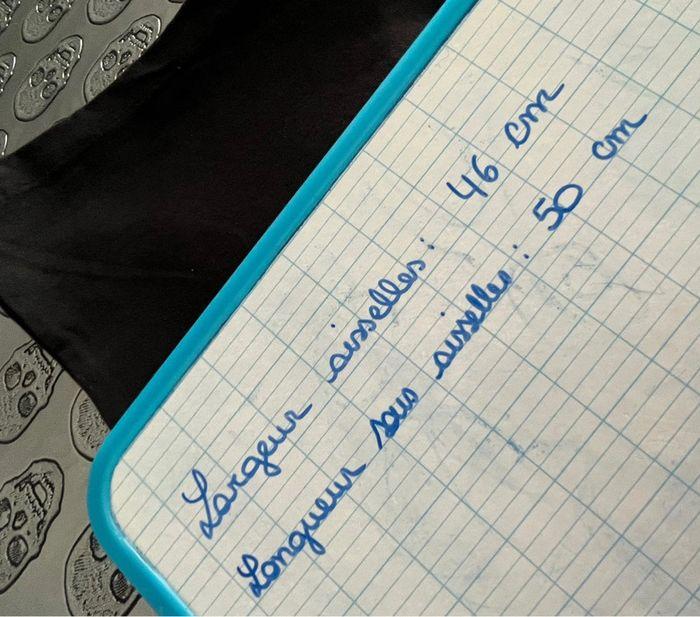 Largeur aisselles : 46 cm
Longueur sous aisselles : 50 cm